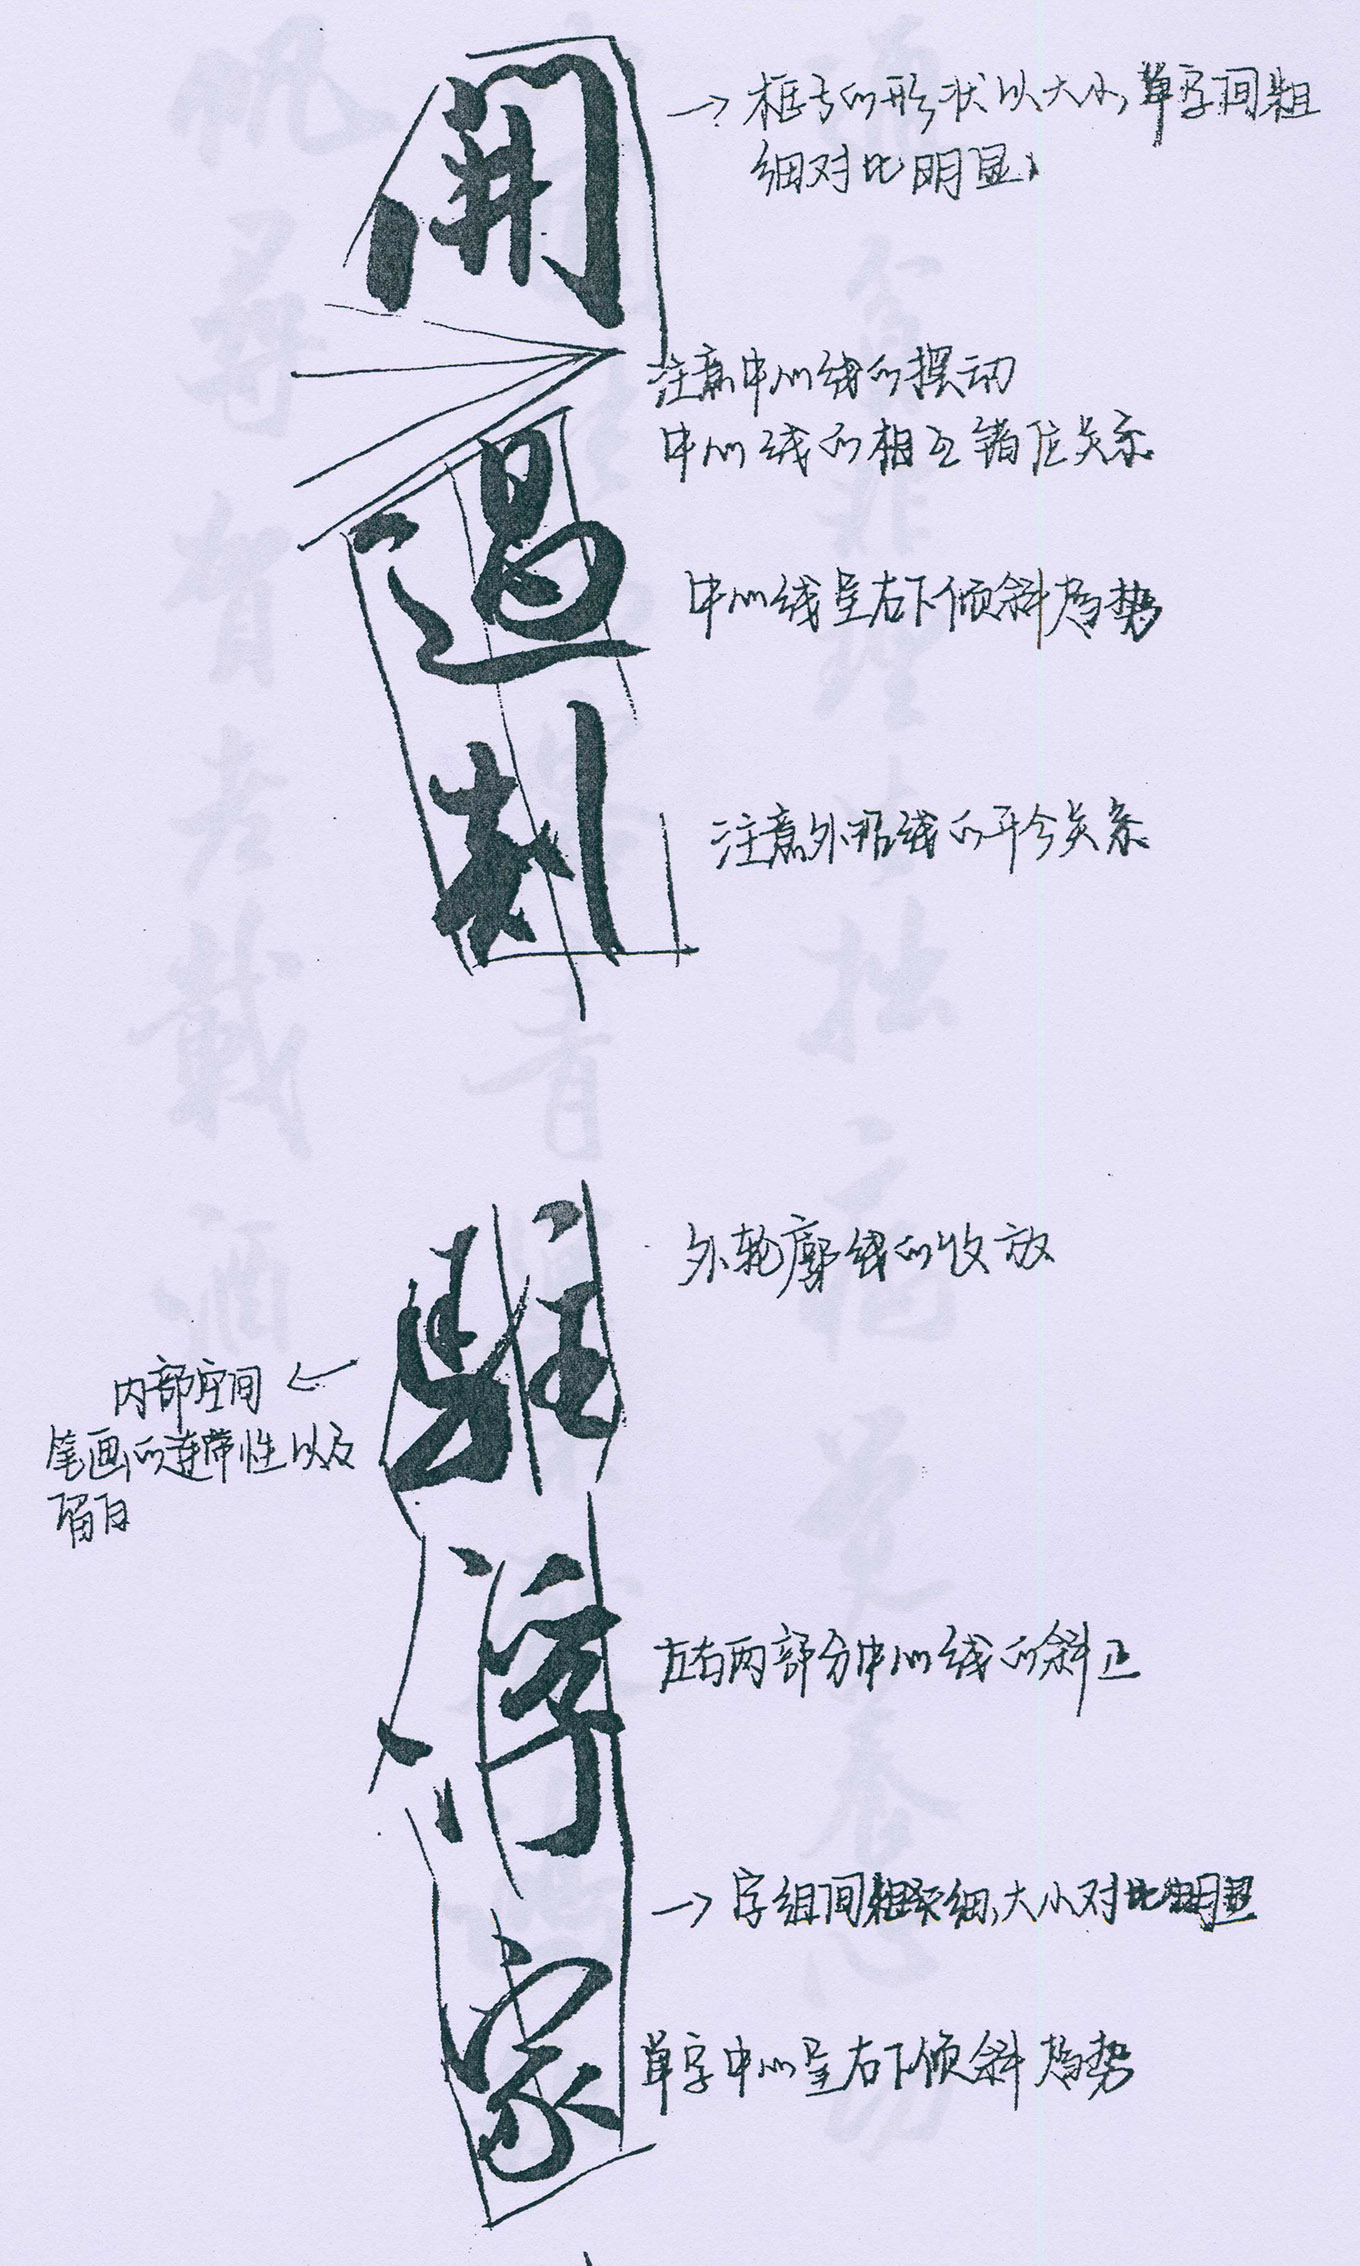 開
→框子的形状以大小,单字间粗
细对比明显、
注意中心线的摆动
中心线的相互错位关系
過
中心线呈右下倾斜趋势
刻
注意外形线的开合关系
駐
外轮廓线的收放
内部空间
笔画的连带性以及
留白
淳
左右两部分中心线的斜正
→字组间粗细、大小对比明显
家
单字中心呈右下倾斜趋势